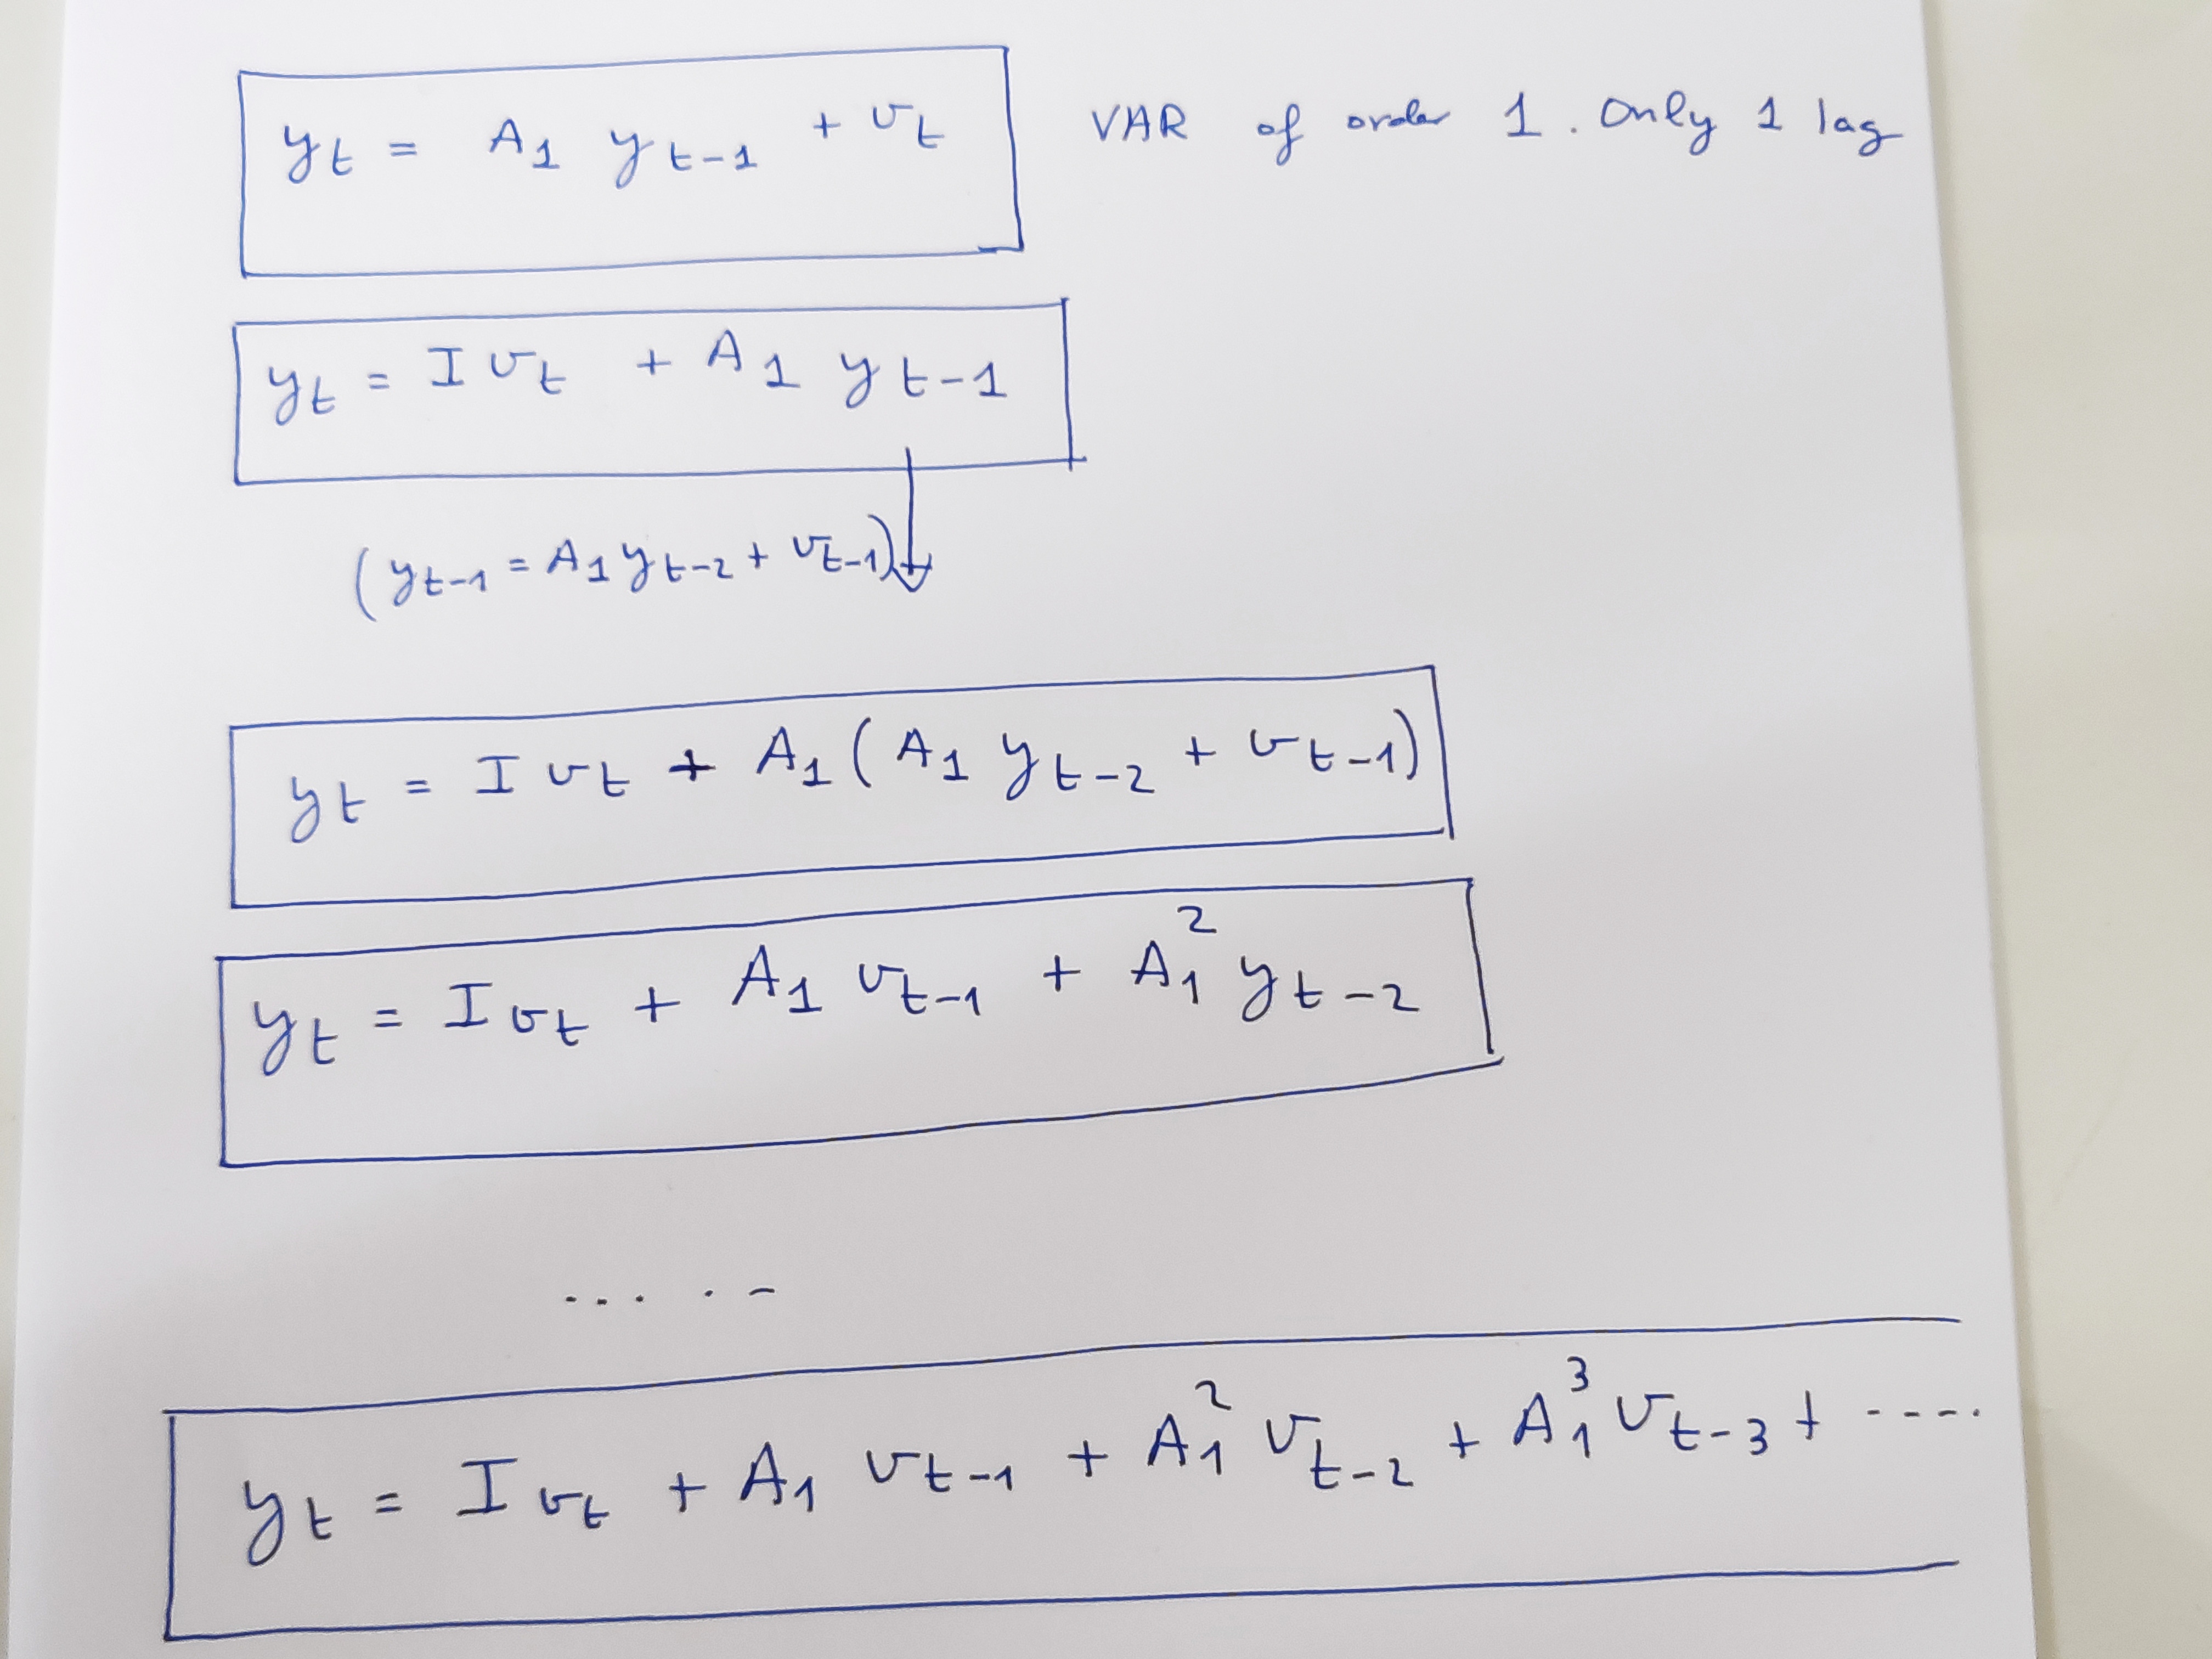 y_t = A_1 y_{t-1} + v_t VAR of order 1. Only 1 lag
y_t = I v_t + A_1 y_{t-1}
(y_{t-1} = A_1 y_{t-2} + v_{t-1})
y_t = I v_t + A_1 (A_1 y_{t-2} + v_{t-1})
y_t = I v_t + A_1 v_{t-1} + A_1^2 y_{t-2}
.....
y_t = I v_t + A_1 v_{t-1} + A_1^2 v_{t-2} + A_1^3 v_{t-3} + ....